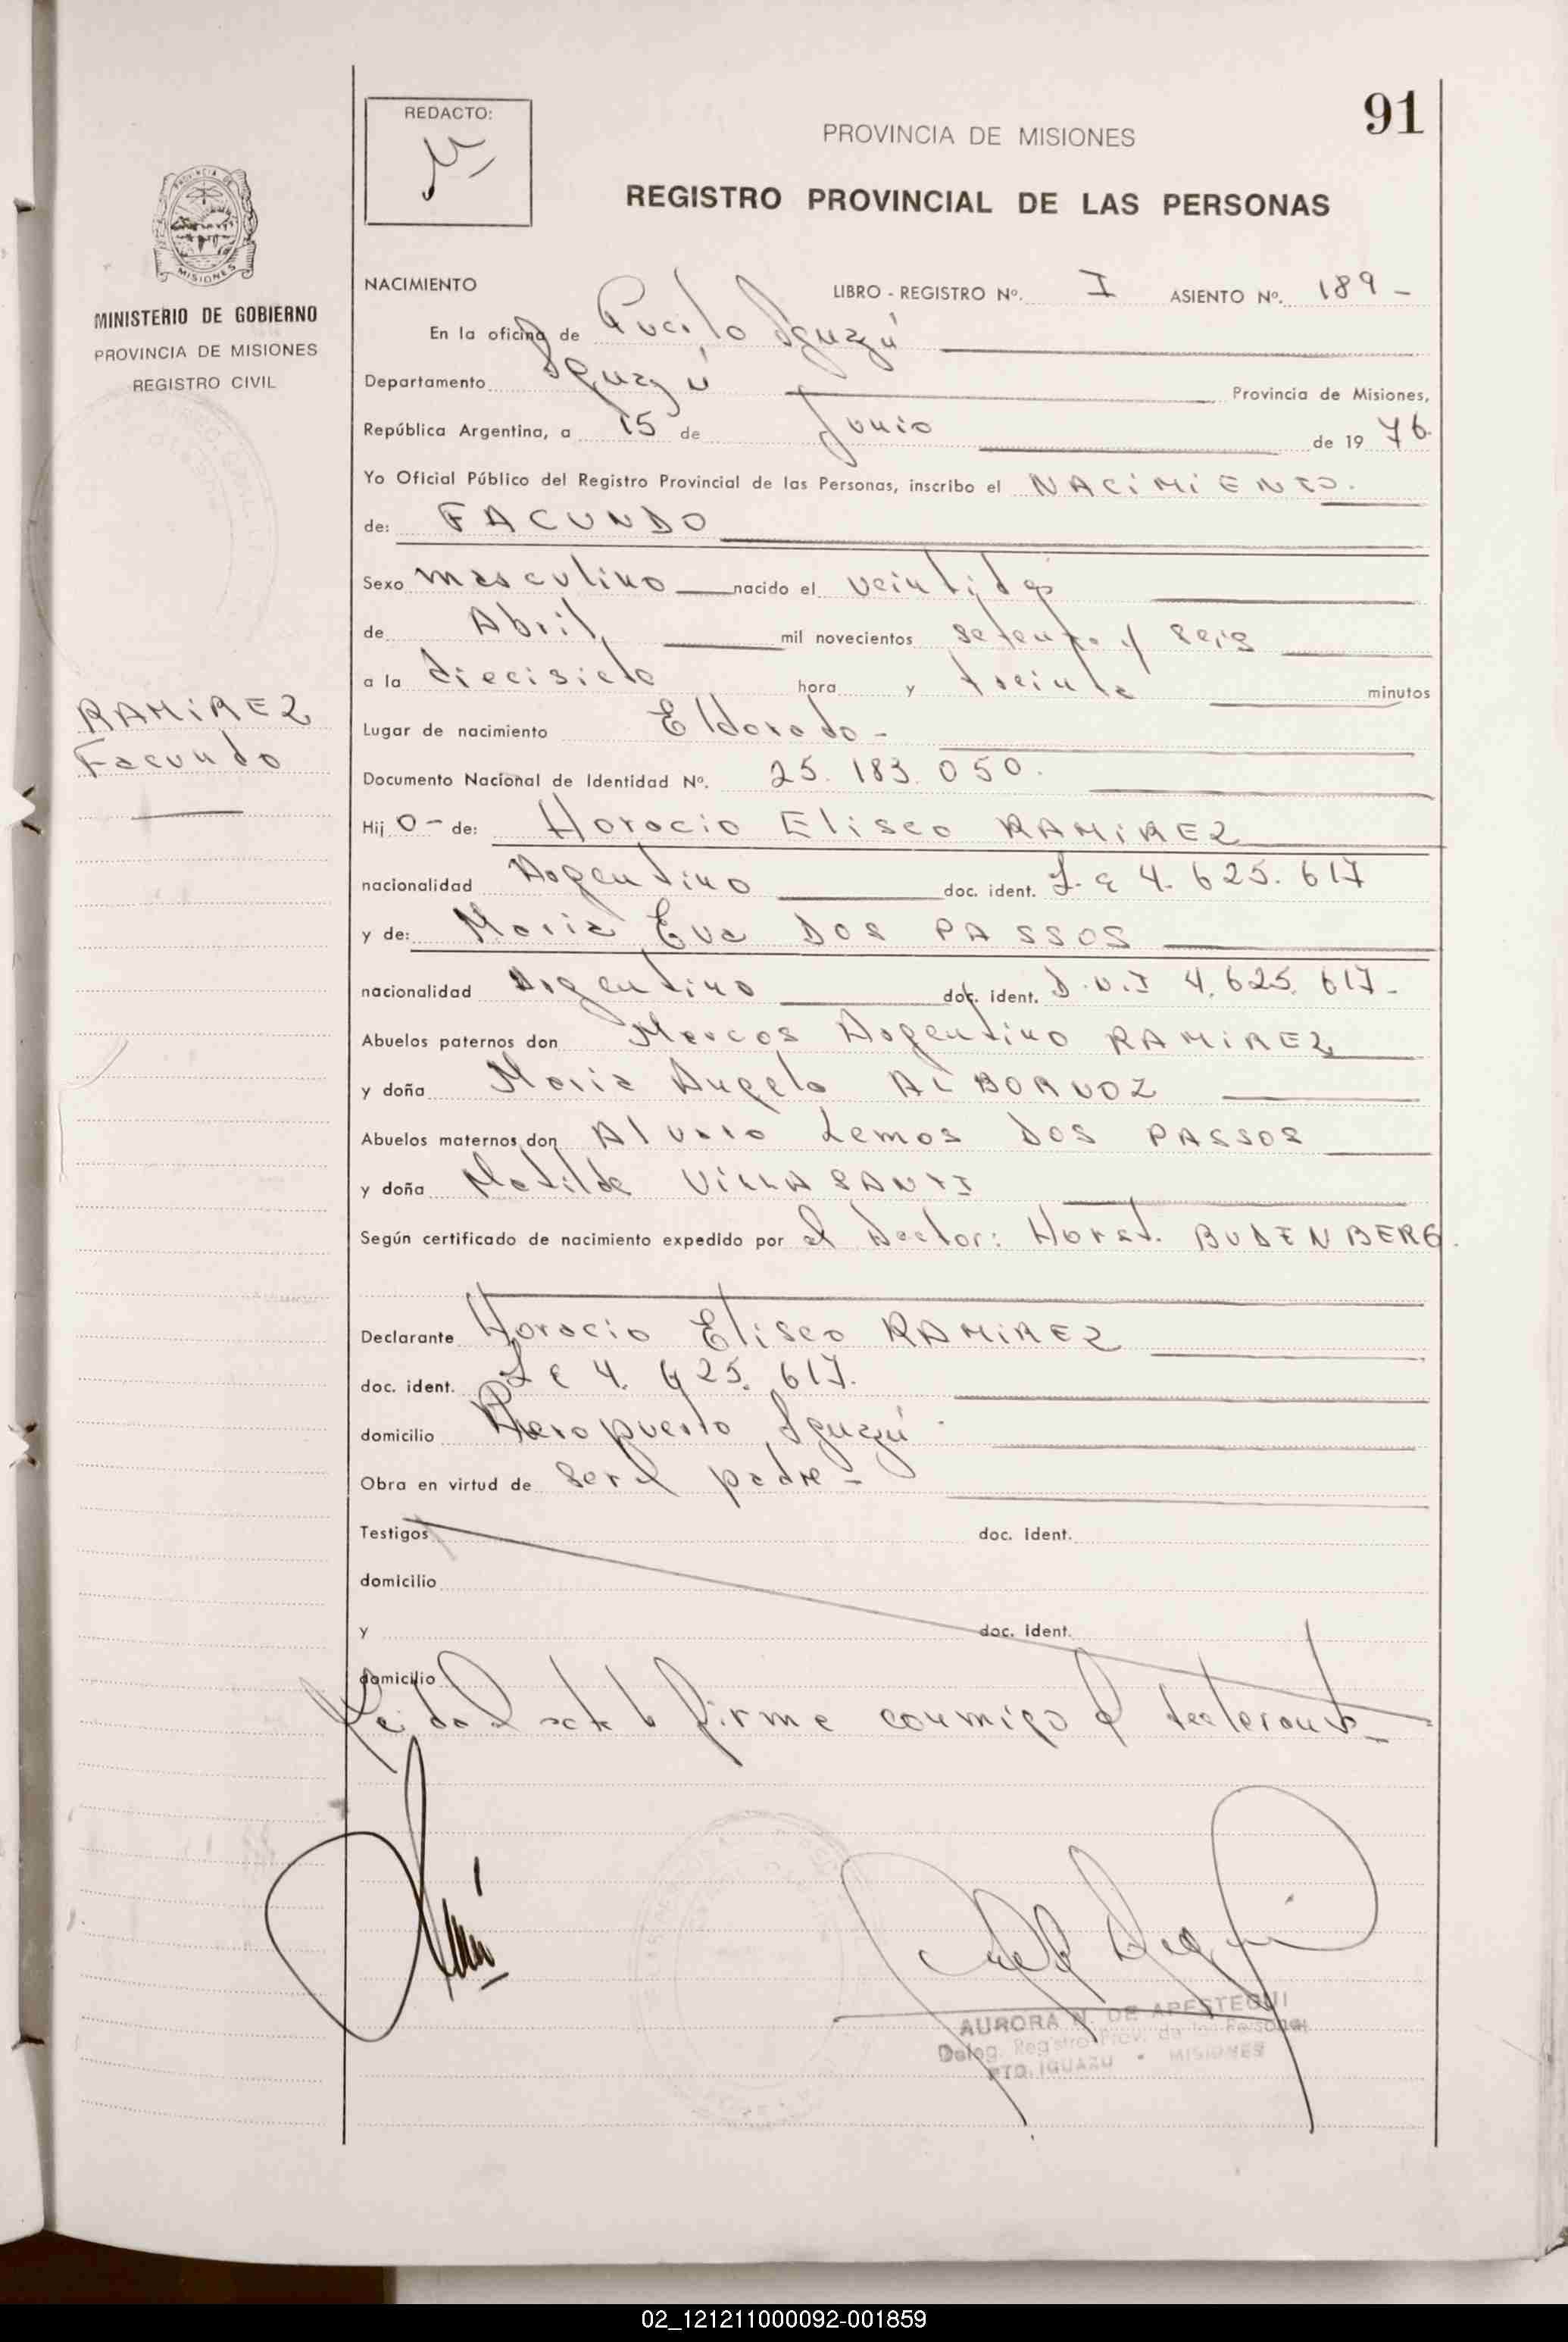 91
REDACTO:
PROVINCIA DE MISIONES
REGISTRO PROVINCIAL DE LAS PERSONAS
PROVINCIA DE
MISIONES
MINISTERIO DE GOBIERNO
PROVINCIA DE MISIONES
REGISTRO CIVIL
RAMIREZ
Facundo
NACIMIENTO LIBRO - REGISTRO Nº. I ASIENTO Nº. 189 -
En la oficina de Puerto Iguazú
Departamento Iguazú Provincia de Misiones,
República Argentina, a 15 de Junio de 19 76.
Yo Oficial Público del Registro Provincial de las Personas, inscribo el NACIMIENTO.
de: FACUNDO
Sexo masculino nacido el veintidos
de Abril mil novecientos setenta y seis
a la diecisiete hora y treinta minutos
Lugar de nacimiento Eldorado -
Documento Nacional de Identidad Nº. 25.183.050.
Hij o - de: Horacio Eliseo RAMIREZ
nacionalidad Argentino doc. ident. L.E 4.625.617
y de: Maria Eva DOS PASSOS
nacionalidad Argentina doc. ident. D.N.I 4.625.617-
Abuelos paternos don Marcos Argentino RAMIREZ
y doña Maria Angela ALBORNOZ
Abuelos maternos don Alvaro Lemos DOS PASSOS
y doña Matilde VILLASANTI
Según certificado de nacimiento expedido por el Doctor: Horst. BUDENBERG.
Declarante Horacio Eliseo RAMIREZ
doc. ident. L E 4.625.617.
domicilio Aeropuerto Iguazú.
Obra en virtud de ser el padre -
Testigos doc. ident.
domicilio
y doc. ident.
domicilio
Leida el acta la firma conmigo el declarante -
AURORA N. DE APESTEGUI
Deleg. Registro Prov. de las Personas
PTO. IGUAZU - MISIONES
02_121211000092-001859